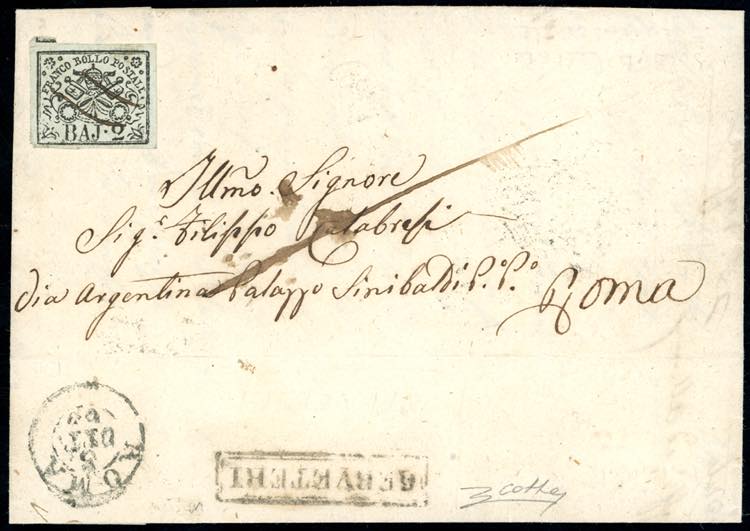 FRANCO BOLLO POSTALE
BAJ. 2
Illmo. Signore
Sigr. Filippo Calabresi
Via Argentina Palazzo Sinibaldi P.o P.o
Roma
ROMA
CERVETERI